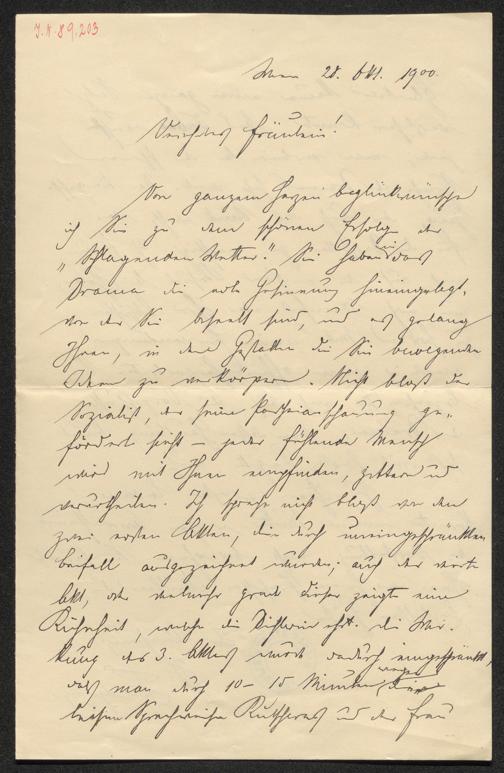 I.N. 89.203
Wien 28. Okt. 1900.
Verehrtes Fräulein!
Von ganzem Herzen beglückwünsche
ich Sie zu dem schönen Erfolge der
„Schlagenden Wetter." Sie haben in das
Drama die edle Gesinnung hineingelegt,
von der Sie beseelt sind, und es gelang
Ihnen, in den Gestalten die Sie bewegenden
Ideen zu verkörpern. Nicht bloß der
Sozialist, der seine Parteianschauung ge-
fördert sieht – jeder fühlende Mensch
wird mit Ihnen empfinden, zittern und
verurtheilen. Ich spreche nicht bloß von den
zwei ersten Akten, die durch uneingeschränkten
Beifall ausgezeichnet wurden; auch der vierte
Akt, oder vielmehr grade dieser zeigt eine
Kühnheit, welche die Dichterin ehrt. Die Wir-
kung des 3. Aktes wurde dadurch eingeschränkt,
daß man durch 10–15 Minuten wegen der
leisen Sprechweise und der Frau